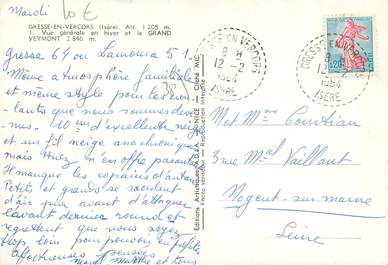 Mardi
10 €
GRESSE-EN-VERCORS (Isère). Alt. 1 205 m.
1. Vue générale en hiver et le GRAND
VEYMONT 2 346 m.
Gresse 64 ou Lamoura 51.
Même atmosphère familiale
et même style pour les
que nous sommes
10 cm d'excellente neige
et un fil neige anachronique
mais tenez en offre passable
Il manque les copains d'antan
Petits et grands se saoulent
d'air pur avant d'attaquer
l'avant dernier round et
regrettent que vous soyez
trop loin pour pouvoir en profiter
Affectueuses pensées
et tous
38
Editions Artistiques
NICE
Cliché MIC
Photo véritable
Reproduction interdite
GRESSE-EN-VERCORS
12-2
1964
ISÈRE
GRESSE-EN-VERCORS
12-2
1964
ISÈRE
0,20
M et Mme Courtian
3 rue Ml Vaillant
Nogent-sur-marne
Seine